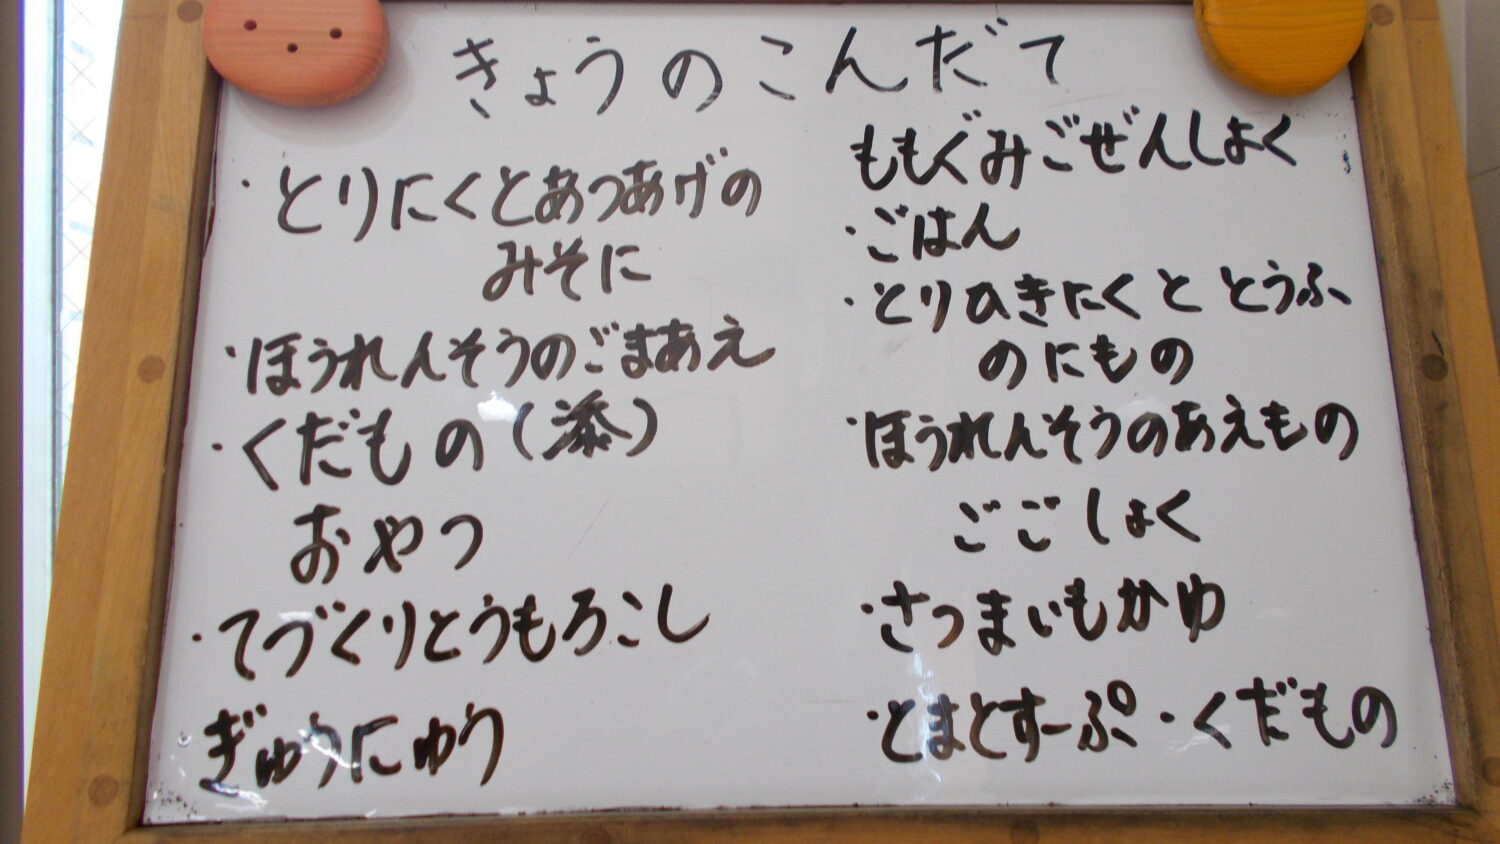 きょうのこんだて
・とりにくとあつあげの
みそに
・ほうれんそうのごまあえ
・くだもの()
おやつ
・てづくりとうもろこし
ぎゅうにゅう
ももぐみごぜんしょく
・ごはん
・とりひきにくと とうふ
のにもの
・ほうれんそうのあえもの
ごごしょく
・さつまいもかゆ
・とまとすーぷ・くだもの